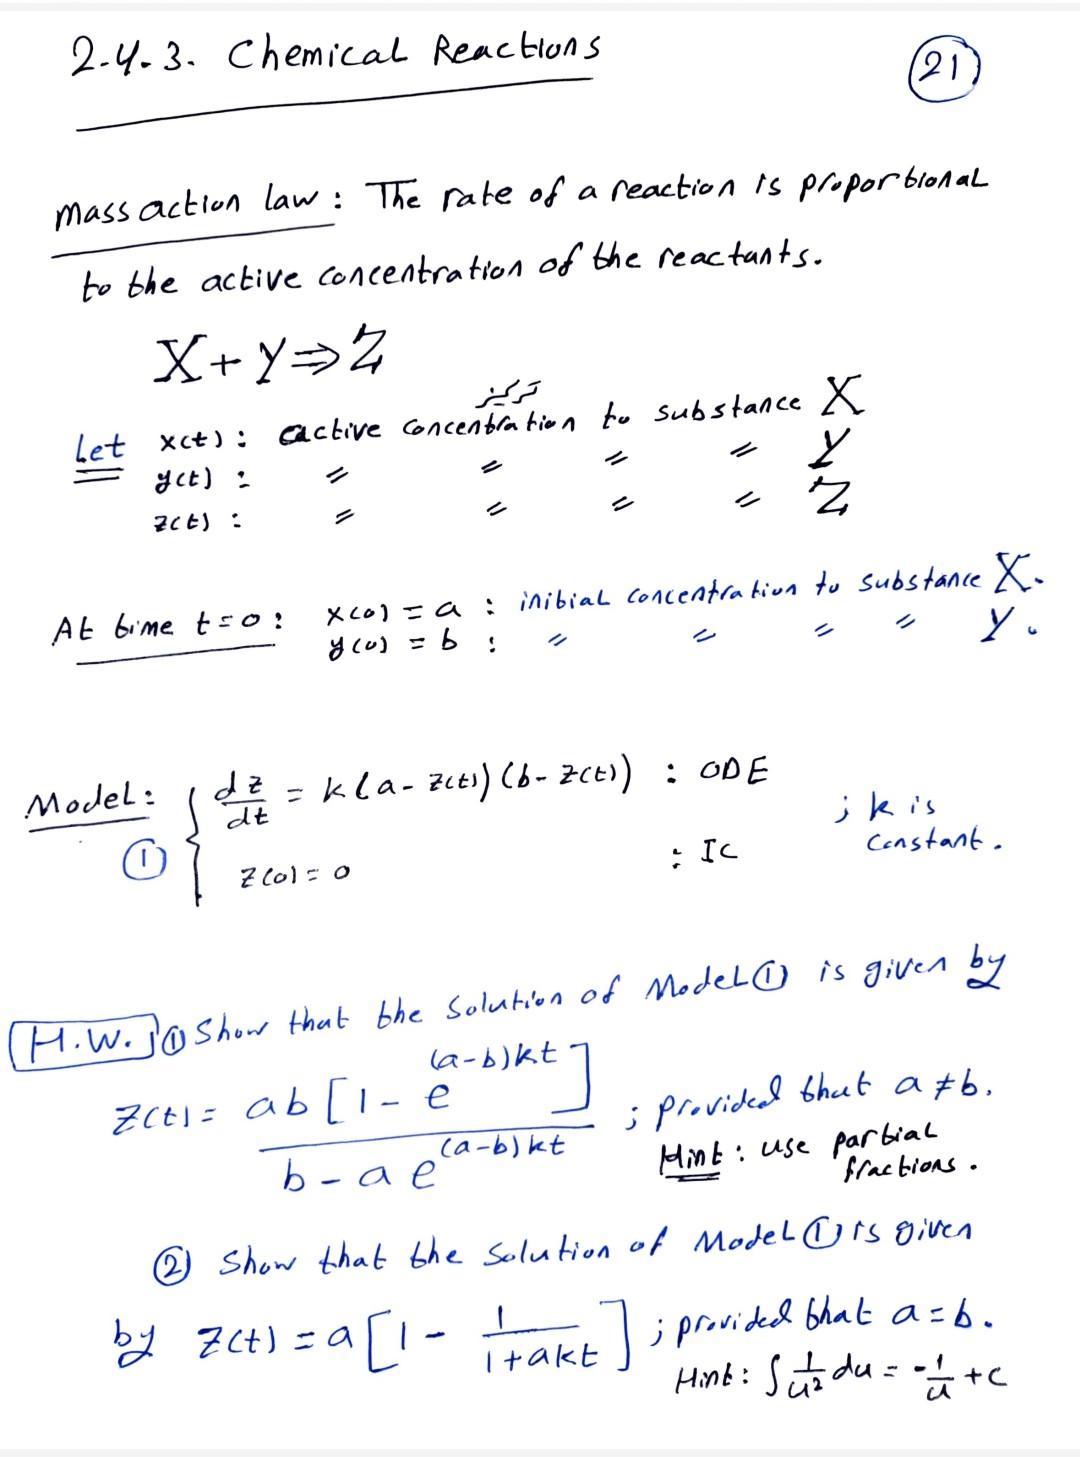 2.4.3. Chemical Reactions
(21)
mass action law : The rate of a reaction is proportional
to the active concentration of the reactants.
X + Y ⇒ Z
تركيز
Let x(t) : active concentration to substance X
y(t) : " " " " Y
z(t) : " " " " Z
At time t=0 : x(0) = a : initial concentration to substance X.
y(0) = b : " " " " Y.
Model : ① { dz/dt = k(a - z(t)) (b - z(t)) : ODE
; k is constant.
z(0) = 0 : IC
H.W. ① Show that the solution of Model ① is given by
z(t) = ab[1 - e^{(a-b)kt}] / (b - a e^{(a-b)kt}) ; provided that a ≠ b.
Hint : use partial fractions.
② Show that the solution of Model ① is given
by z(t) = a[1 - 1/(1+akt)] ; provided that a = b.
Hint : ∫ 1/u² du = -1/u + c